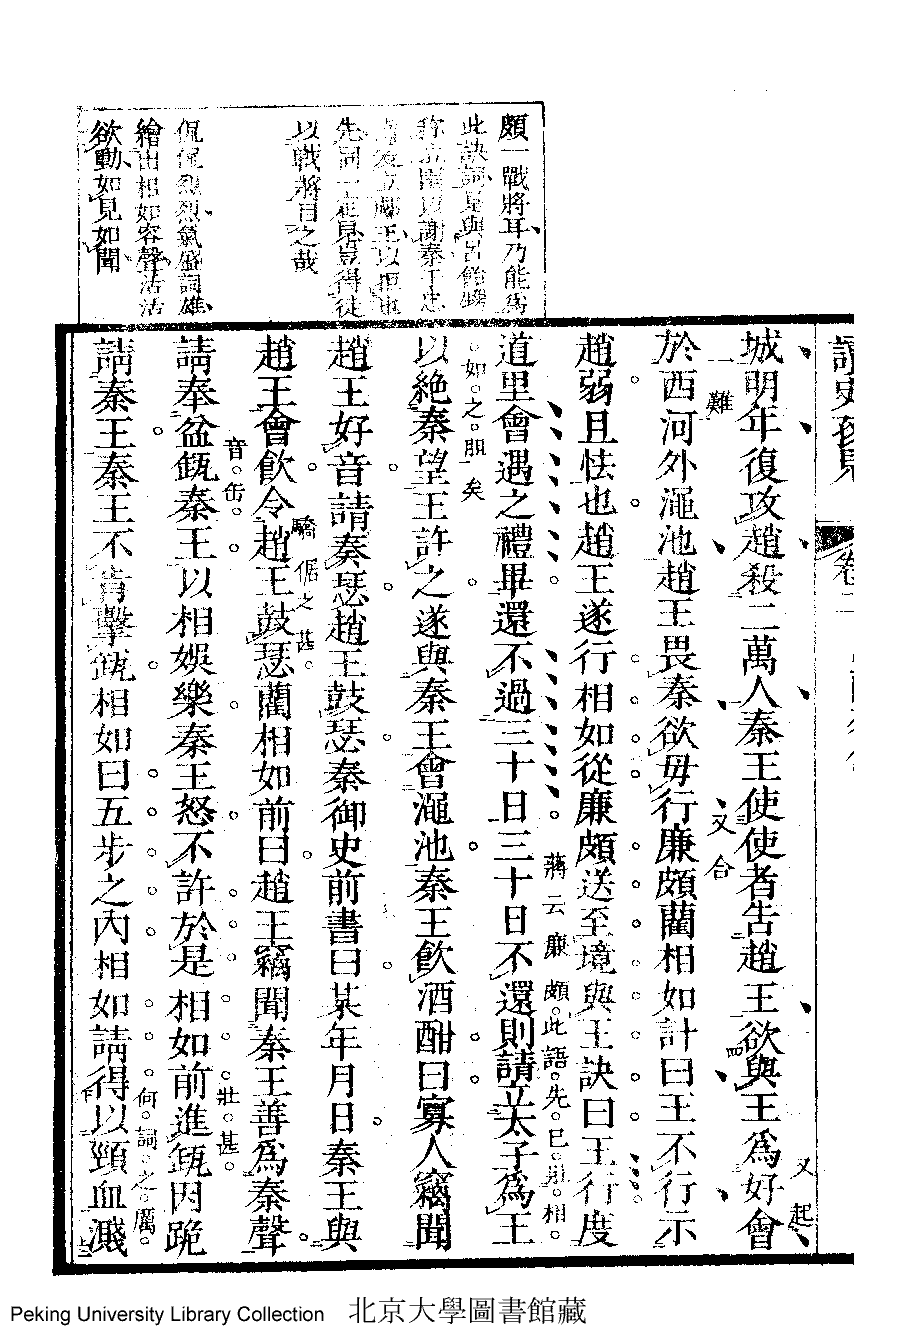 頗一戰將耳乃能爲
先詞一定見豈得徒
以戰將目之哉
侃侃烈烈氣盛詞雄
繪出相如容聲活活
欲動如見如聞
讀史
卷二
城明年復攻趙殺二萬人秦王使使者告趙王欲與王爲好會
又起
一難
又合
於西河外澠池趙王畏秦欲毋行廉頗藺相如計曰王不行示
趙弱且怯也趙王遂行相如從廉頗送至境與王訣曰王行度
蔣云廉頗此語先已用相
道里會遇之禮畢還不過三十日三十日不還則請立太子爲王
如之胆矣
以絶秦望王許之遂與秦王會澠池秦王飲酒酣曰寡人竊聞
趙王好音請奏瑟趙王鼓瑟秦御史前書曰某年月日秦王與
驕倨之甚
趙王會飲令趙王鼓瑟藺相如前曰趙王竊聞秦王善爲秦聲
音缶
壯甚
請奉盆缻秦王以相娛樂秦王怒不許於是相如前進缻因跪
何詞之厲
請秦王秦王不肯擊缻相如曰五步之內相如請得以頸血濺
Peking University Library Collection 北京大學圖書館藏